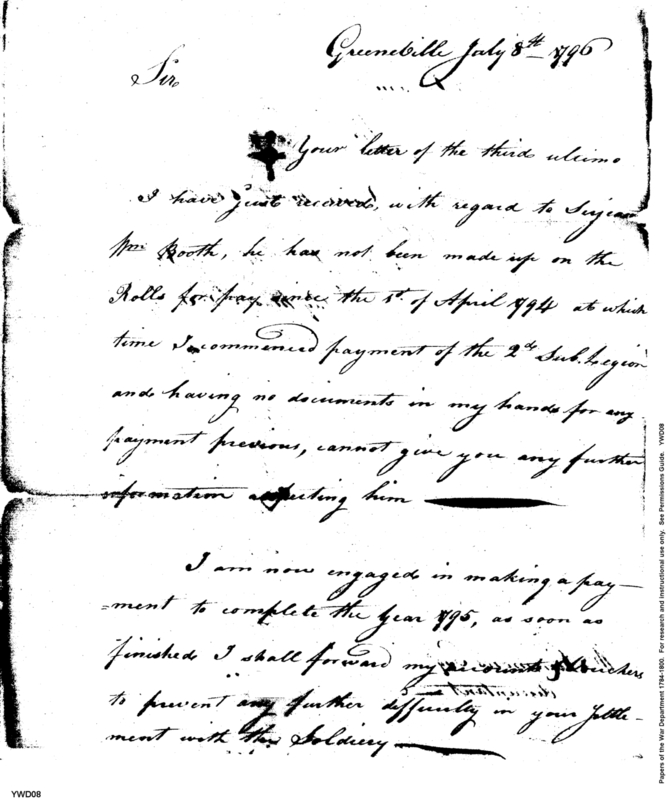 Greeneville July 8th 1796
Sir
Your letter of the third ulimo
I have just received, with regard to Serjean
Wm Booth, he has not been made up on the
Rolls for pay since the 1st of April 1794 at which
time I commenced payment of the 2d Sub. Legion
and having no documents in my hands for any
payment previous, cannot give you any further
information respecting him
I am now engaged in making a pay-
=ment to complete the Year 1795, as soon as
finished I shall forward my accounts & Vouchers
to prevent any further difficulty in your Settle-
ment with the Soldiery
Papers of the War Department 1784-1800. For research and instructional use only. See Permissions Guide. YWD08
YWD08